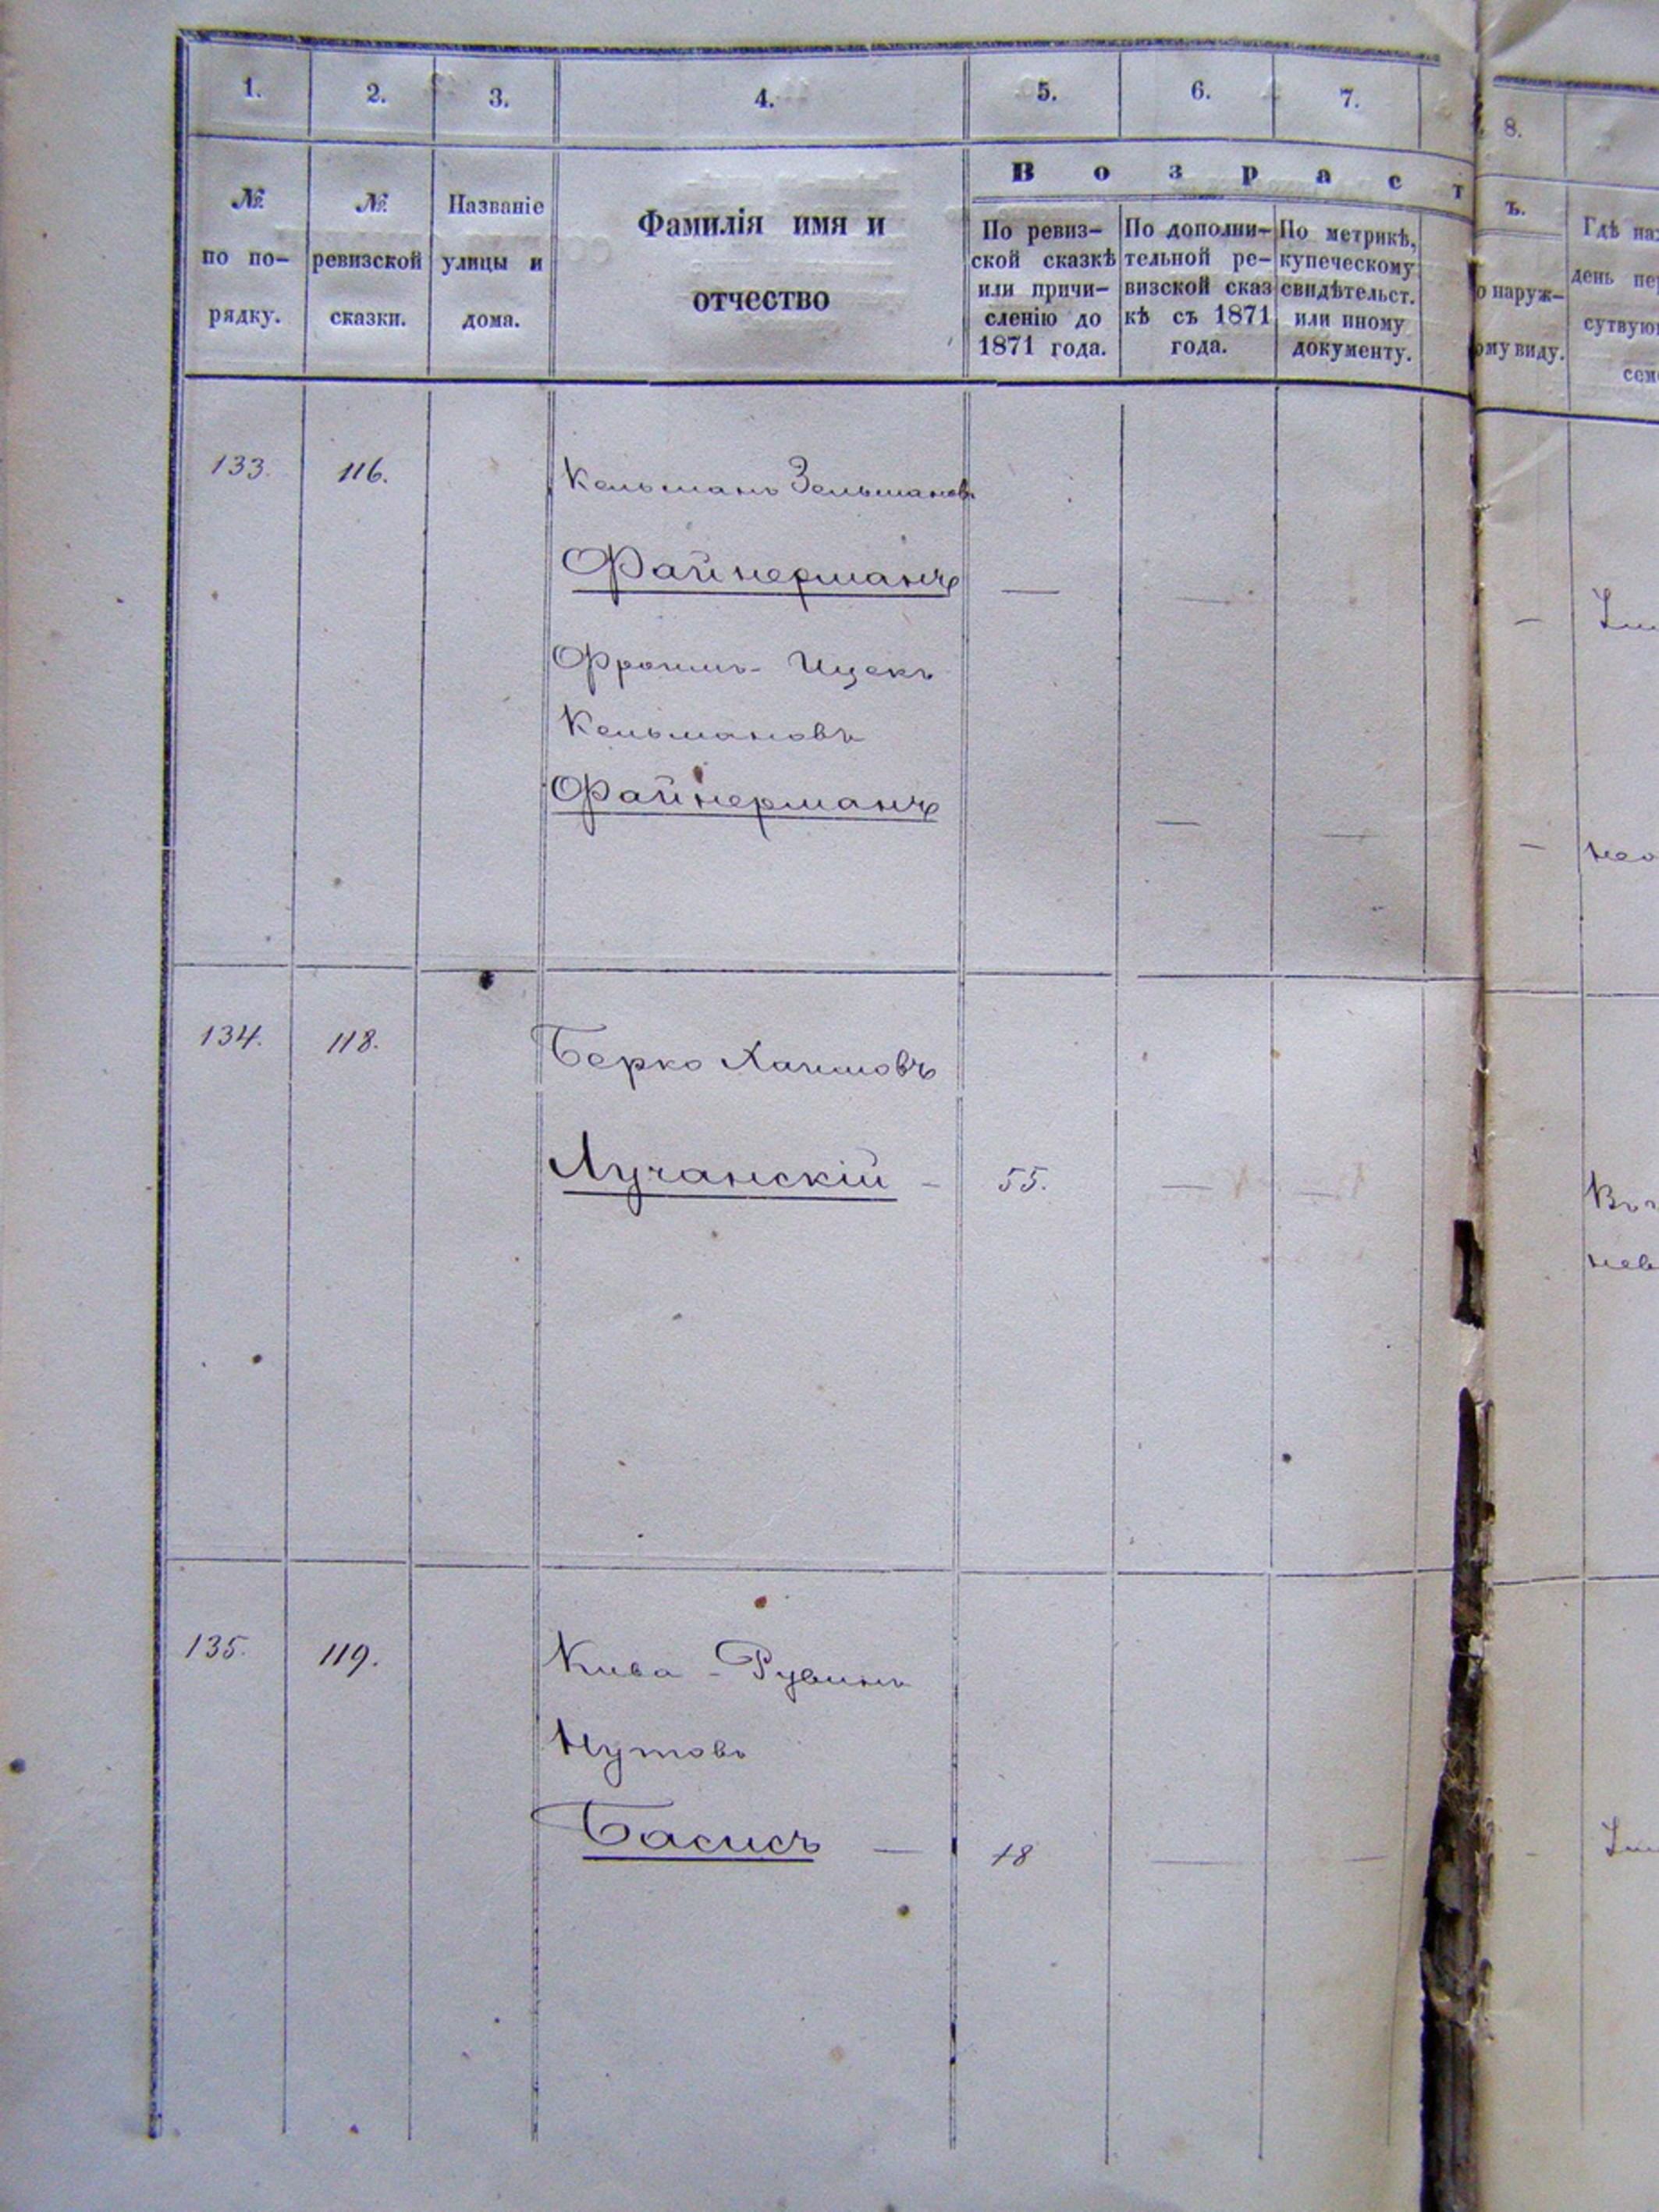 1. 2. 3. 4. 5. 6. 7. 8.
В о з р а с т ъ.
№ по по-рядку.
№ ревизской сказки.
Названіе улицы и дома.
Фамилія имя и
отчество
По ревиз-
ской сказкѣ
или причи-
сленію до
1871 года.
По дополни-
тельной ре-
визской сказ
кѣ съ 1871
года.
По метрикѣ,
купеческому
свидѣтельст.
или иному
документу.
о наруж-
ому виду.
Гдѣ на
день пе
сутвую
сем
133. 116. Кельманъ Зельмановъ
Файнерманъ —
Фроимъ-Ицекъ
Кельмановъ
Файнерманъ — —
134. 118. Берко Хаимовъ
Лучанскій - 55. — —
135. 119. Кива-Рувинъ
Нутовъ
Басисъ — 18 — —